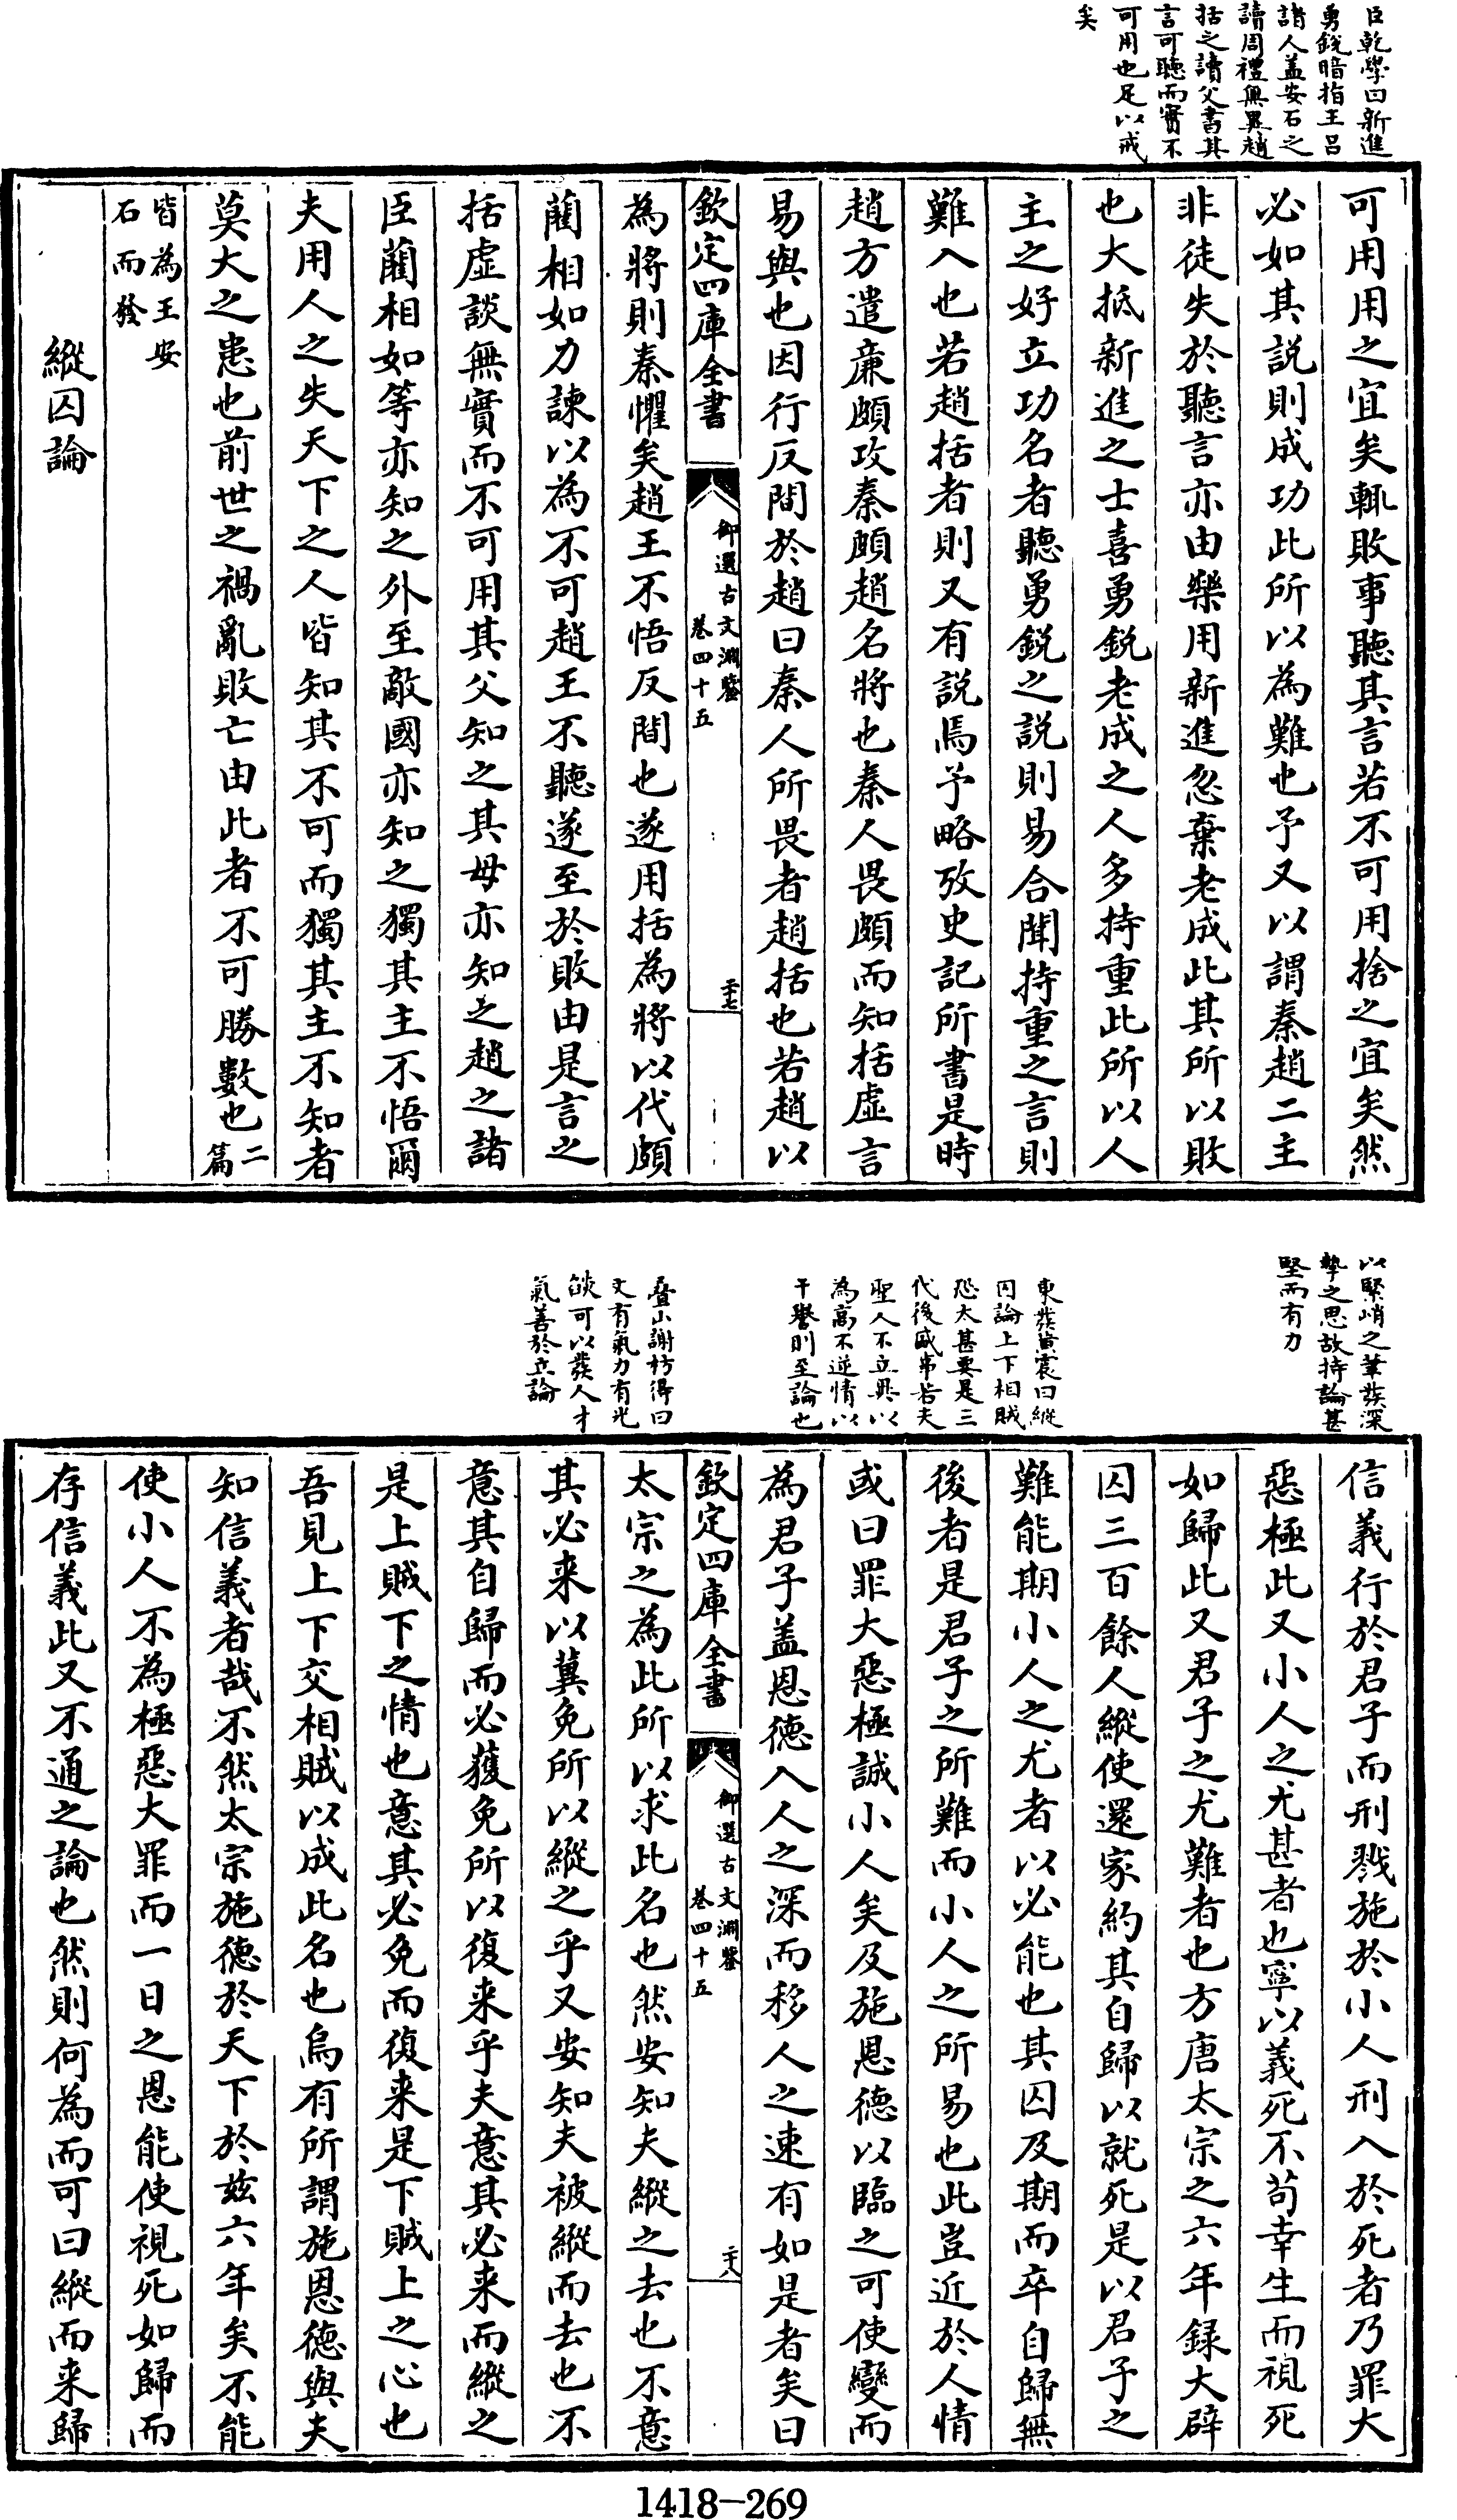 臣乾學曰新進
勇銳暗指王呂
諸人盖安石之
讀周禮無異趙
括之讀父書其
言可聽而實不
可用也足以戒
矣
可用用之宜矣輒敗事聽其言若不可用捨之宜矣然
必如其説則成功此所以為難也予又以謂秦趙二主
非徒失於聽言亦由樂用新進忽棄老成此其所以敗
也大抵新進之士喜勇銳老成之人多持重此所以人
主之好立功名者聽勇銳之説則易合聞持重之言則
難入也若趙括者則又有説焉予略攷史記所書是時
趙方遣廉頗攻秦頗趙名將也秦人畏頗而知括虛言
易與也因行反間於趙曰秦人所畏者趙括也若趙以
欽定四庫全書
御選古文淵鑒
卷四十五
二十七
為將則秦懼矣趙王不悟反間也遂用括為將以代頗
藺相如力諫以為不可趙王不聽遂至於敗由是言之
括虛談無實而不可用其父知之其母亦知之趙之諸
臣藺相如等亦知之外至敵國亦知之獨其主不悟爾
夫用人之失天下之人皆知其不可而獨其主不知者
莫大之患也前世之禍亂敗亡由此者不可勝數也二
篇
皆為王安
石而發
縱囚論
以緊峭之筆發深
摯之思故持論甚
堅而有力
東發黃震曰縱
囚論上下相賊
恐太甚要是三
代後盛事若夫
聖人不立異以
為高不逆情以
干譽則至論也
疊山謝枋得曰
文有氣力有光
燄可以發人才
氣善於立論
信義行於君子而刑戮施於小人刑入於死者乃罪大
惡極此又小人之尤甚者也寧以義死不苟幸生而視死
如歸此又君子之尤難者也方唐太宗之六年錄大辟
囚三百餘人縱使還家約其自歸以就死是以君子之
難能期小人之尤者以必能也其囚及期而卒自歸無
後者是君子之所難而小人之所易也此豈近於人情
或曰罪大惡極誠小人矣及施恩德以臨之可使變而
為君子盖恩德入人之深而移人之速有如是者矣曰
欽定四庫全書
御選古文淵鑒
卷四十五
二十八
太宗之為此所以求此名也然安知夫縱之去也不意
其必来以冀免所以縱之乎又安知夫被縱而去也不
意其自歸而必獲免所以復来乎夫意其必来而縱之
是上賊下之情也意其必免而復来是下賊上之心也
吾見上下交相賊以成此名也烏有所謂施恩德與夫
知信義者哉不然太宗施德於天下於兹六年矣不能
使小人不為極惡大罪而一日之恩能使視死如歸而
存信義此又不通之論也然則何為而可曰縱而来歸
1418-269